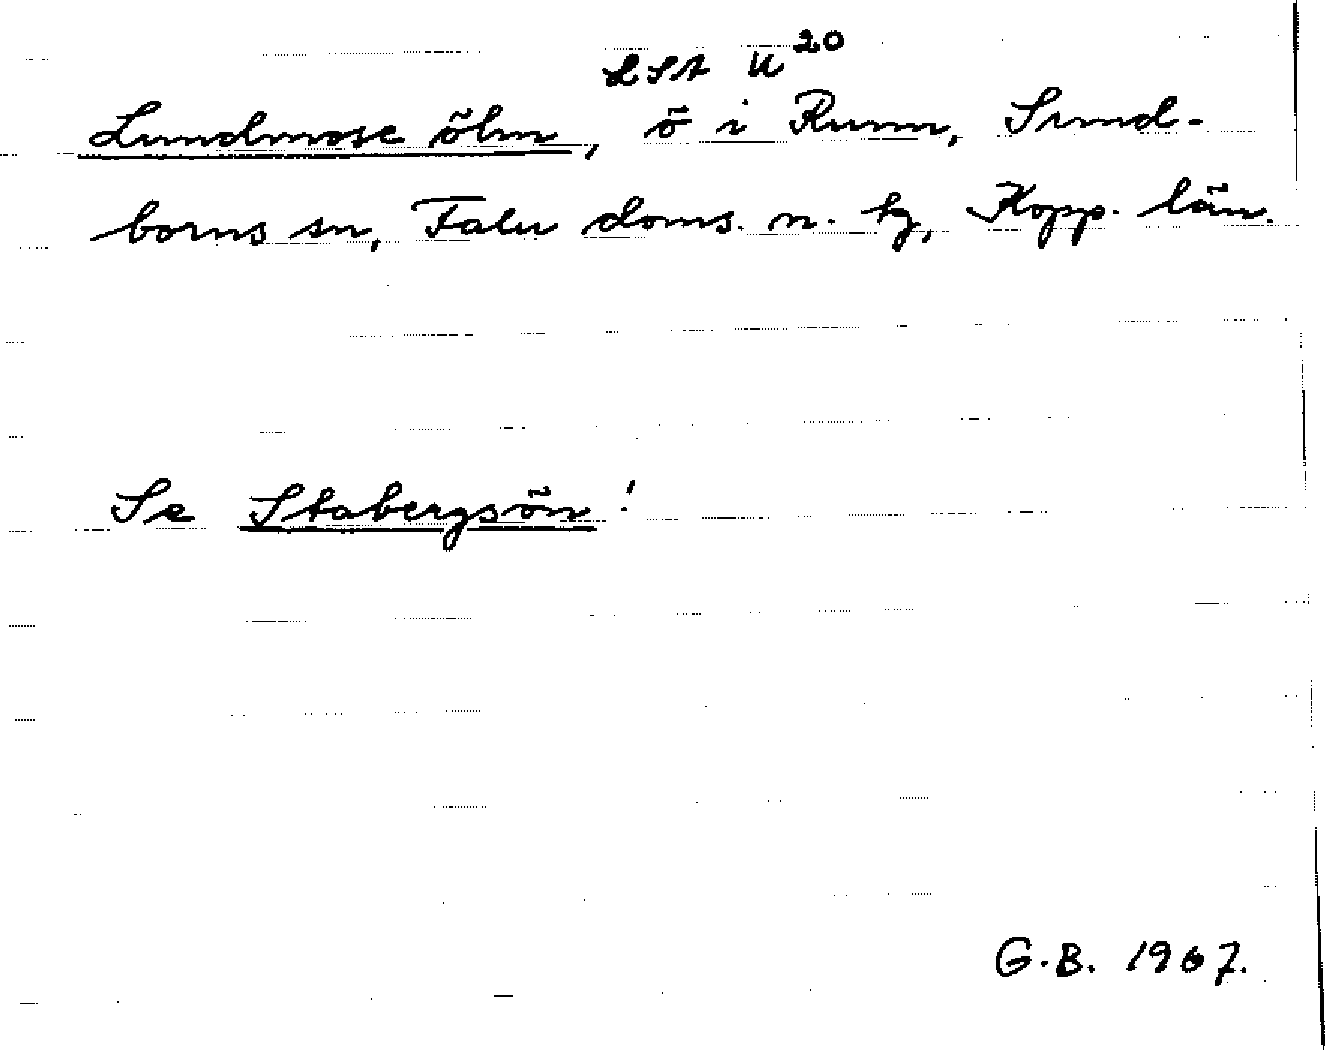 LSA U20
Lundmose ölm, ö i Runn, Sund-
borns sn, Falu doms. n. tg, Kopp. län.
Se Stabergsön!
G.B. 1967.